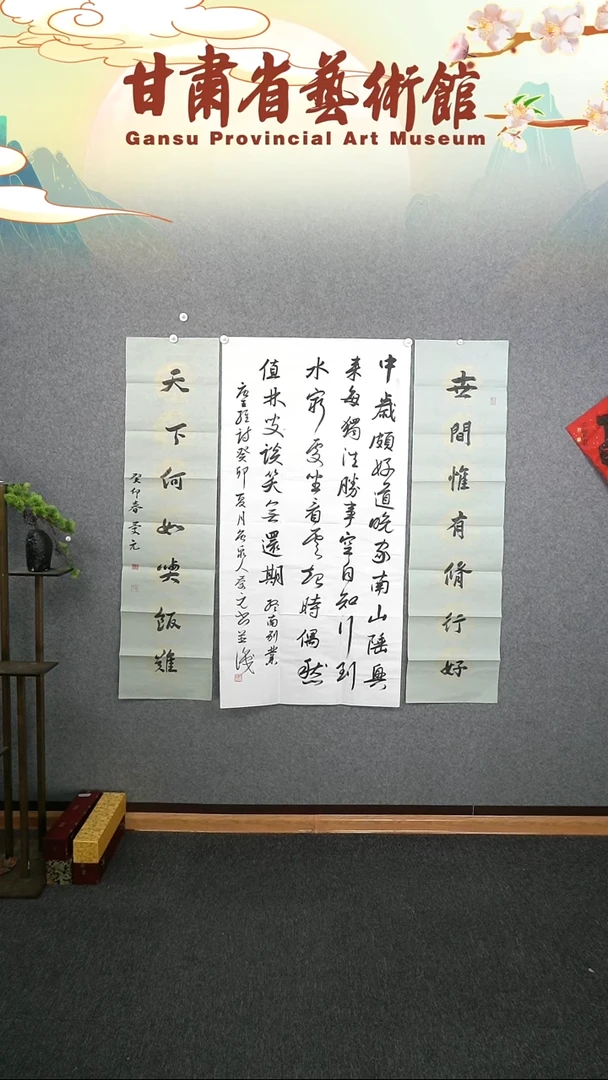 甘肅省藝術館
Gansu Provincial Art Museum
世間惟有脩行好
中歲頗好道晚家南山陲興
來每獨往勝事空自知行到
水窮處坐看雲起時偶然
值林叟談笑無還期 終南別業
唐王維詩癸卯夏月人元書並識
天下何如喫飯難
癸卯春元